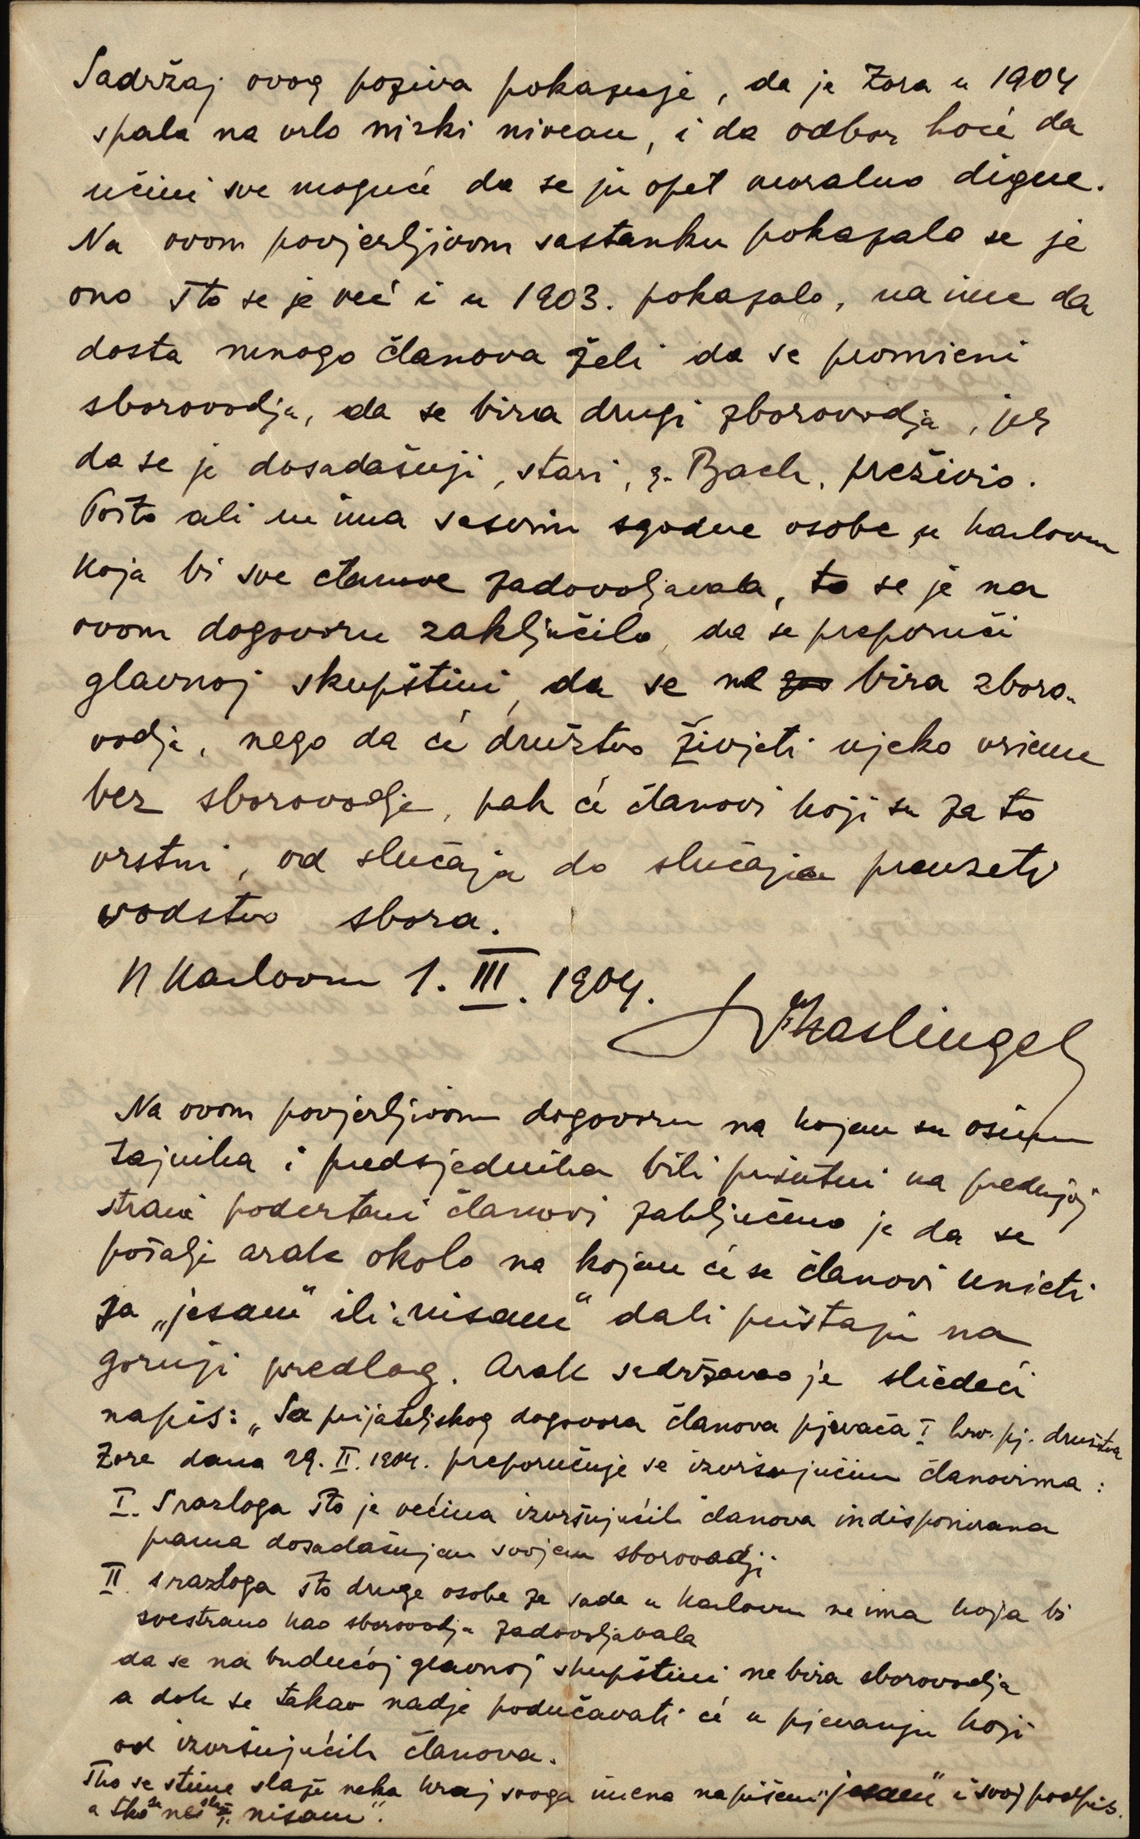 Sadržaj ovog poziva pokazuje, da je Zora u 1904
spala na vrlo nizki niveau, i da odbor hoće da
učini sve moguće da se ju opet moralno digne.
Na ovom povjerljivom sastanku pokazalo se je
ono što se je već i u 1903. pokazalo, na ime da
dosta mnogo članova želi da se promieni
sborovodja, da se bira drugi zborovodja, jer
da se je dosadašnji, stari, g. Bach, preživio.
Pošto ali ne ima sasvim sgodne osobe u Karlovcu
koja bi sve članove zadovoljavala, to se je na
ovom dogovoru zaključilo, da se preporuči
glavnoj skupštini, da se ne bira zboro-
vodje, nego da će družtvo živjeti njeko vrieme
bez sborovodje, pak će članovi koji su za to
vrstni, od slučaja do slučaja preuzeti
vodstvo sbora.
U Karlovcu 1. III. 1904.
Haslinger
Na ovom povjerljivom dogovoru na kojem su osim
tajnika i predsjednika bili prisutni na prednjoj
strani podcrtani članovi zaključeno je da se
pošalje arak okolo na kojem će se članovi unieti
za „jesam" ili „nisam" dali pristaju na
gornji predlog. Arak sadržavao je sliedeći
napis: „Sa prijateljskog dogovora članova pjevača I hrv. pj. družtva
Zore dana 29. II. 1904. preporučuje se izvršujućim članovima:
I. S razloga što je većina izvršujućih članova indisponirana
prama dosadašnjem svojem sborovodji
II. s razloga što druge osobe za sada u Karlovcu ne ima koja bi
svestrano kao sborovodja zadovoljavala
da se na budućoj glavnoj skupštini ne bira sborovodja
a dok se takav nadje podučavati će u pjevanju koji
od izvršujućih članova.
Tko se s time slaže neka kraj svoga imena napiše „jesam" i svoj podpis.
a tko se ne slaže „nisam".